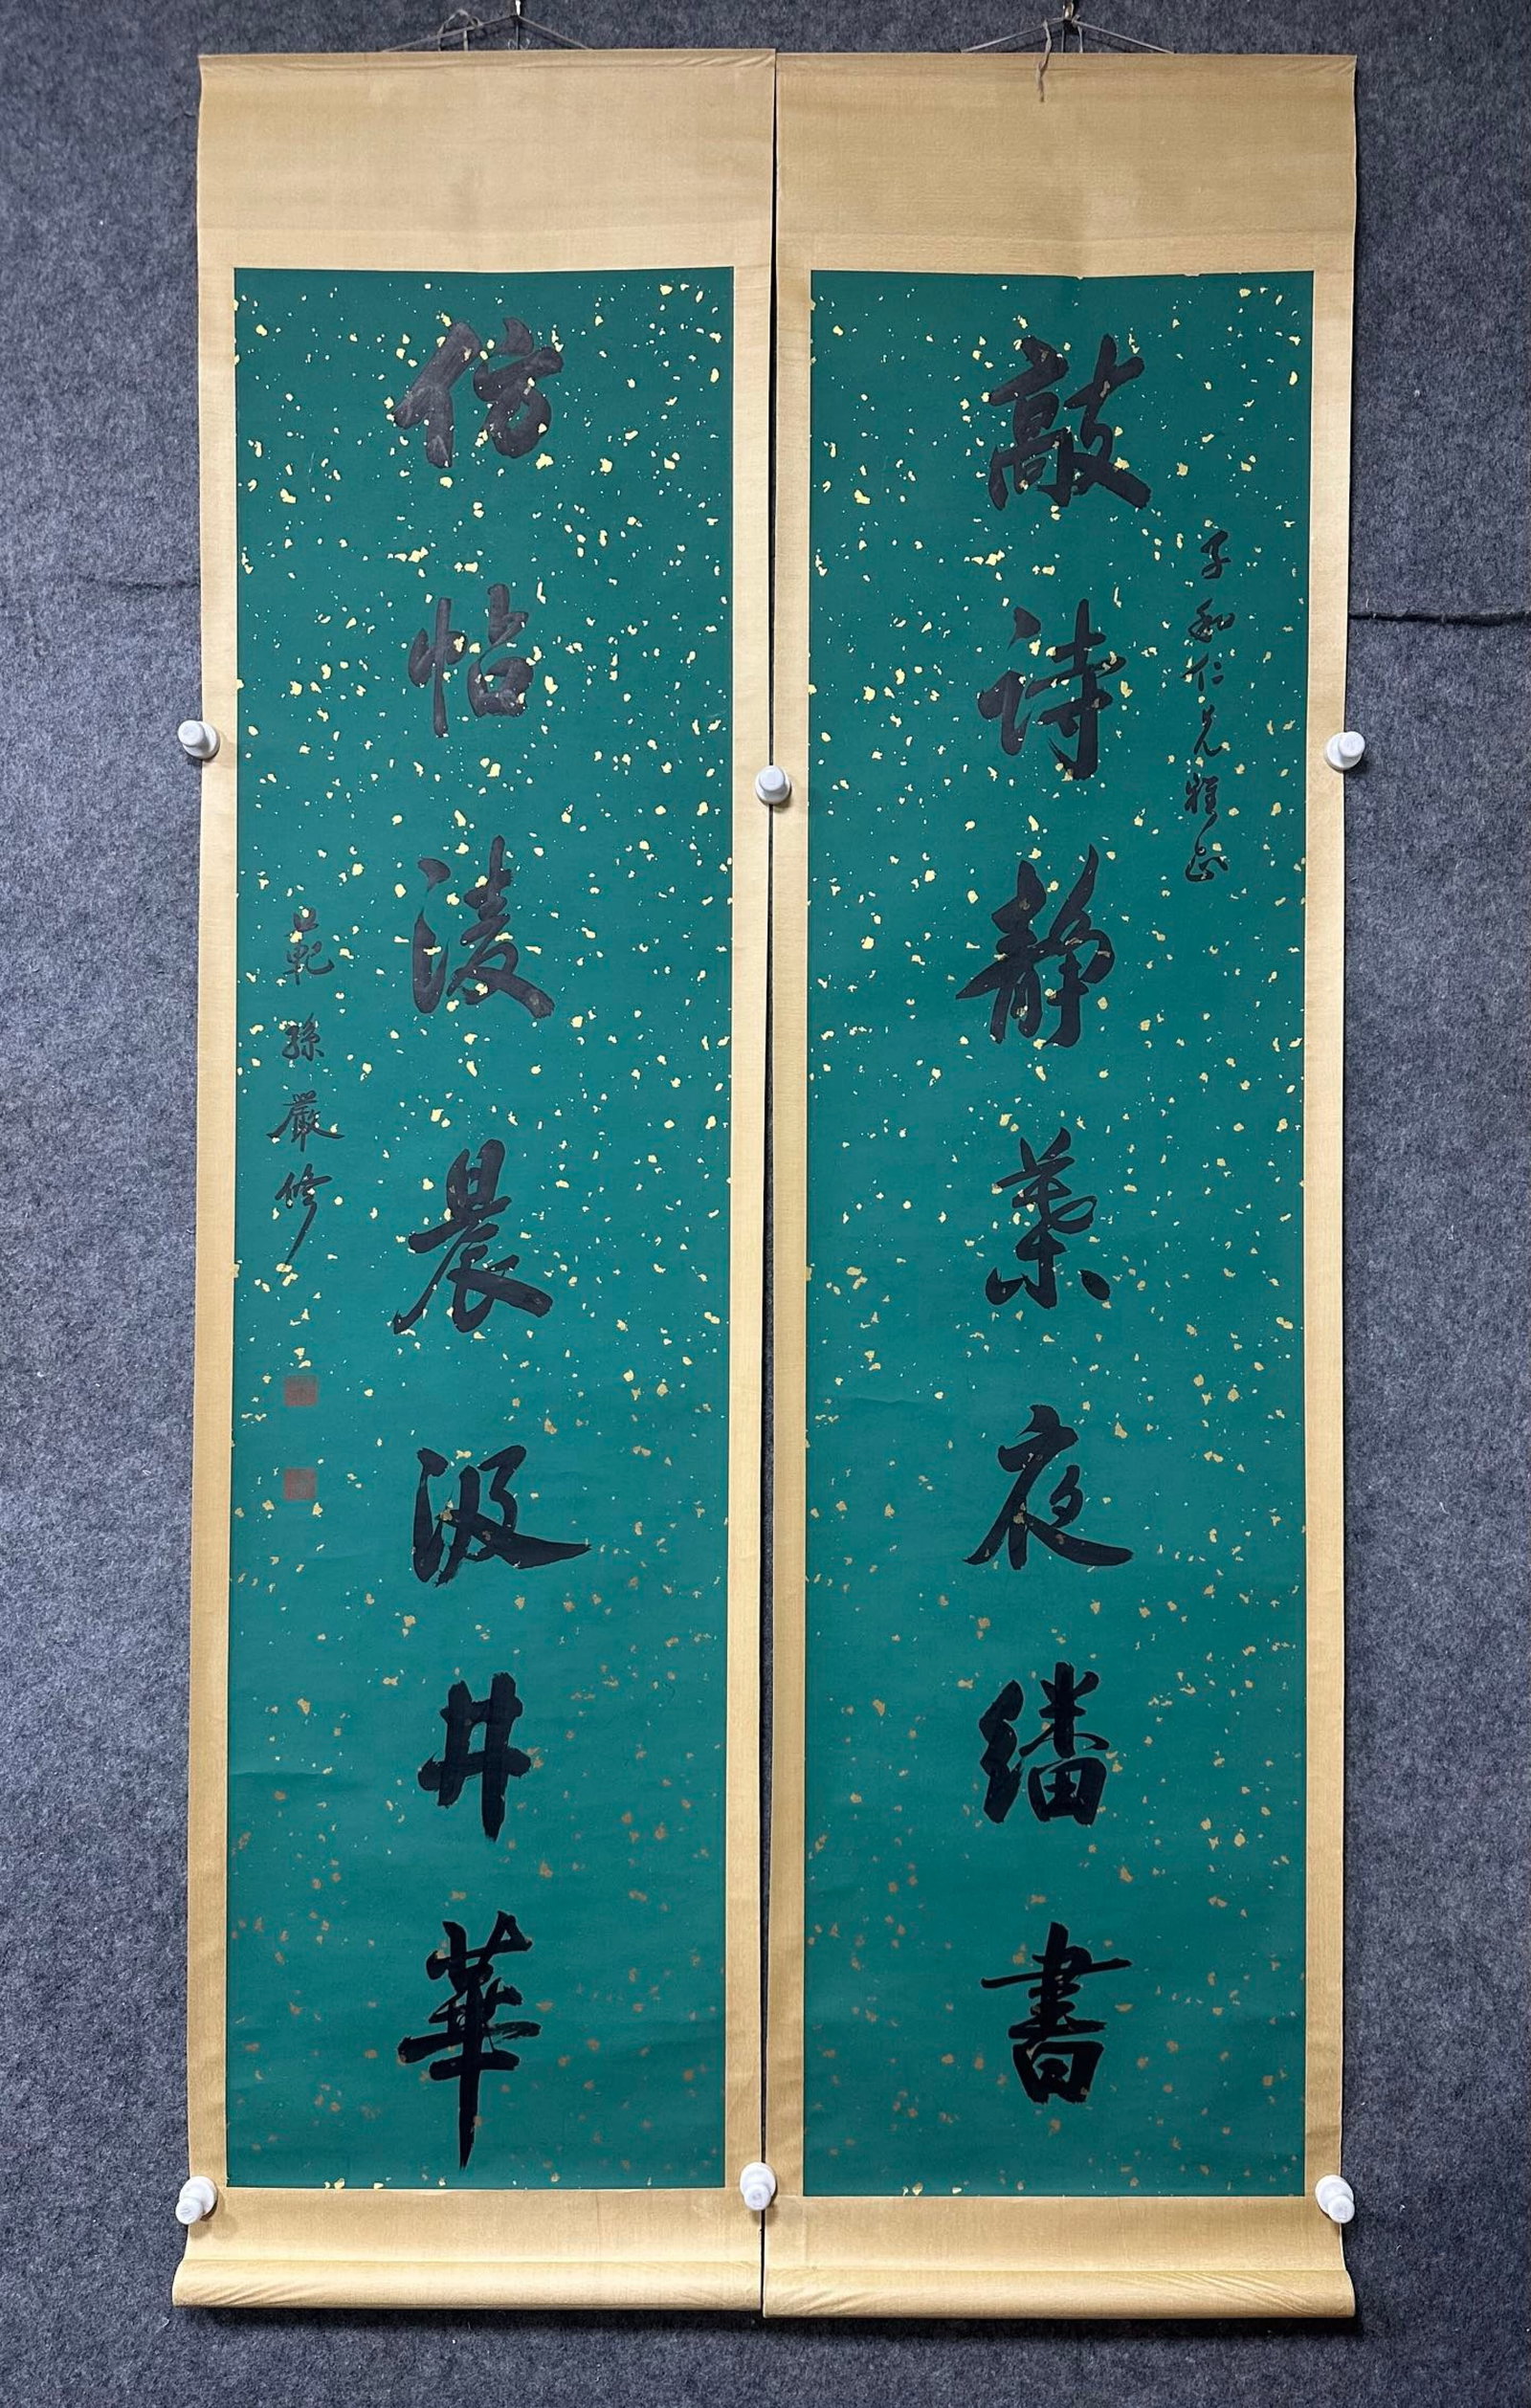 子和仁兄雅正
敲詩靜業夜繙書
仿帖淩晨汲井華
範孫嚴修